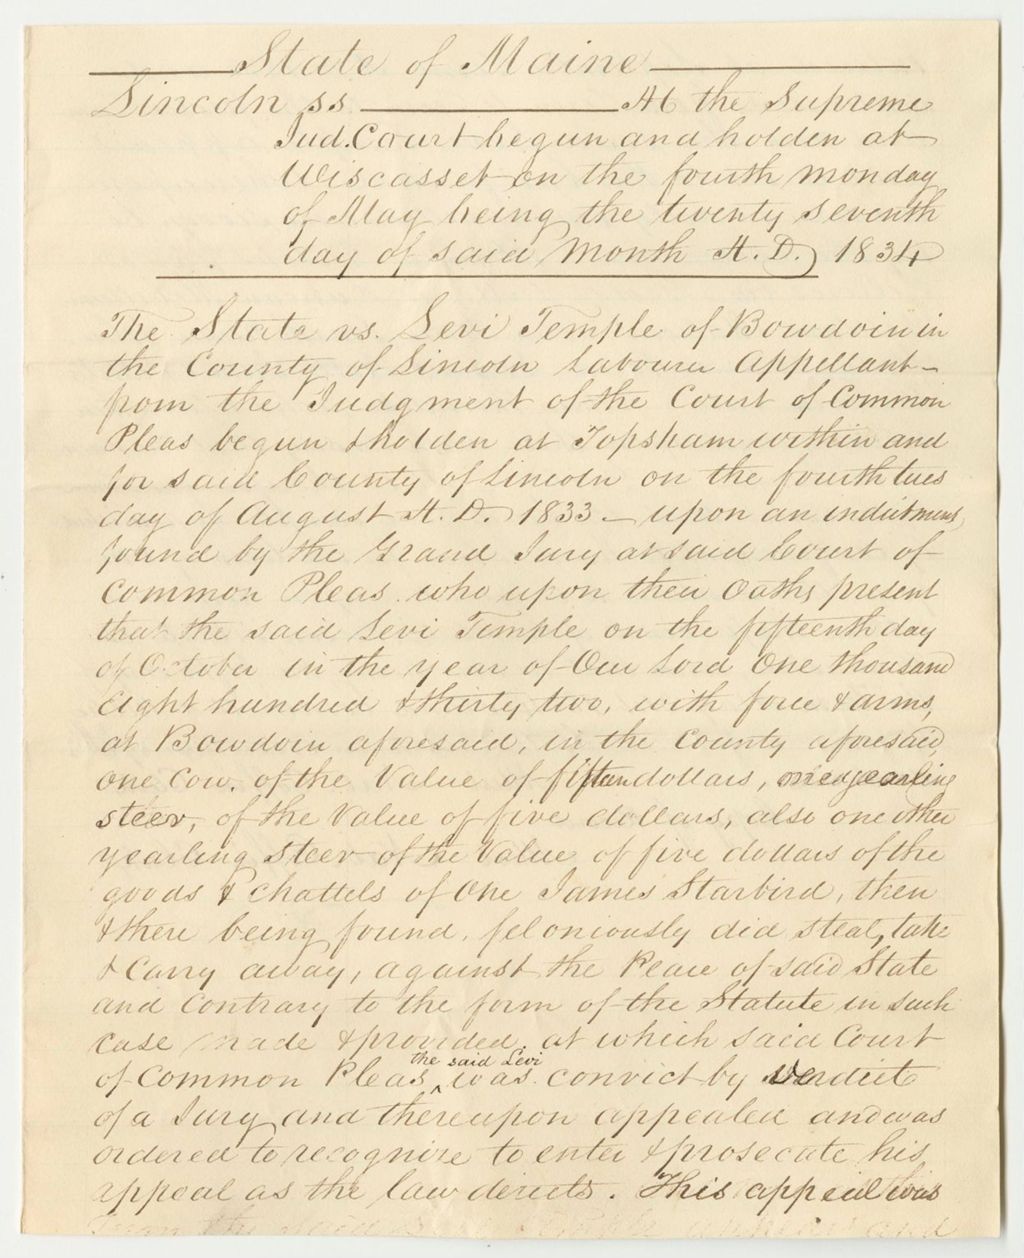 State of Maine
Lincoln ss. At the Supreme
Jud. Court begun and holden at
Wiscasset on the fourth monday
of May being the twenty seventh
day of said Month A. D. 1834
The State vs. Levi Temple of Bowdoin in
the County of Lincoln Labourer Appellant
from the Judgment of the Court of Common
Pleas begun & holden at Topsham within and
for said County of Lincoln on the fourth tues
day of August A. D. 1833 - upon an indictment
found by the Grand Jury at said Court of
Common Pleas who upon their Oaths present
that the said Levi Temple on the fifteenth day
of October in the year of Our Lord One thousand
Eight hundred & thirty two, with force & arms,
at Bowdoin aforesaid, in the County aforesaid,
one Cow, of the Value of fifteen dollars, one yearling
steer, of the Value of five dollars, also one other
yearling steer of the Value of five dollars of the
goods & chattels of One James Starbird, then
& there being found, feloniously did steal, take
& Carry away, against the Peace of said State
and Contrary to the form of the Statute in such
case made & provided. at which said Court
of Common Pleas the said Levi was convict by verdict
of a Jury and thereupon appealed and was
ordered to recognize to enter & prosecute his
appeal as the law directs. This appeal was